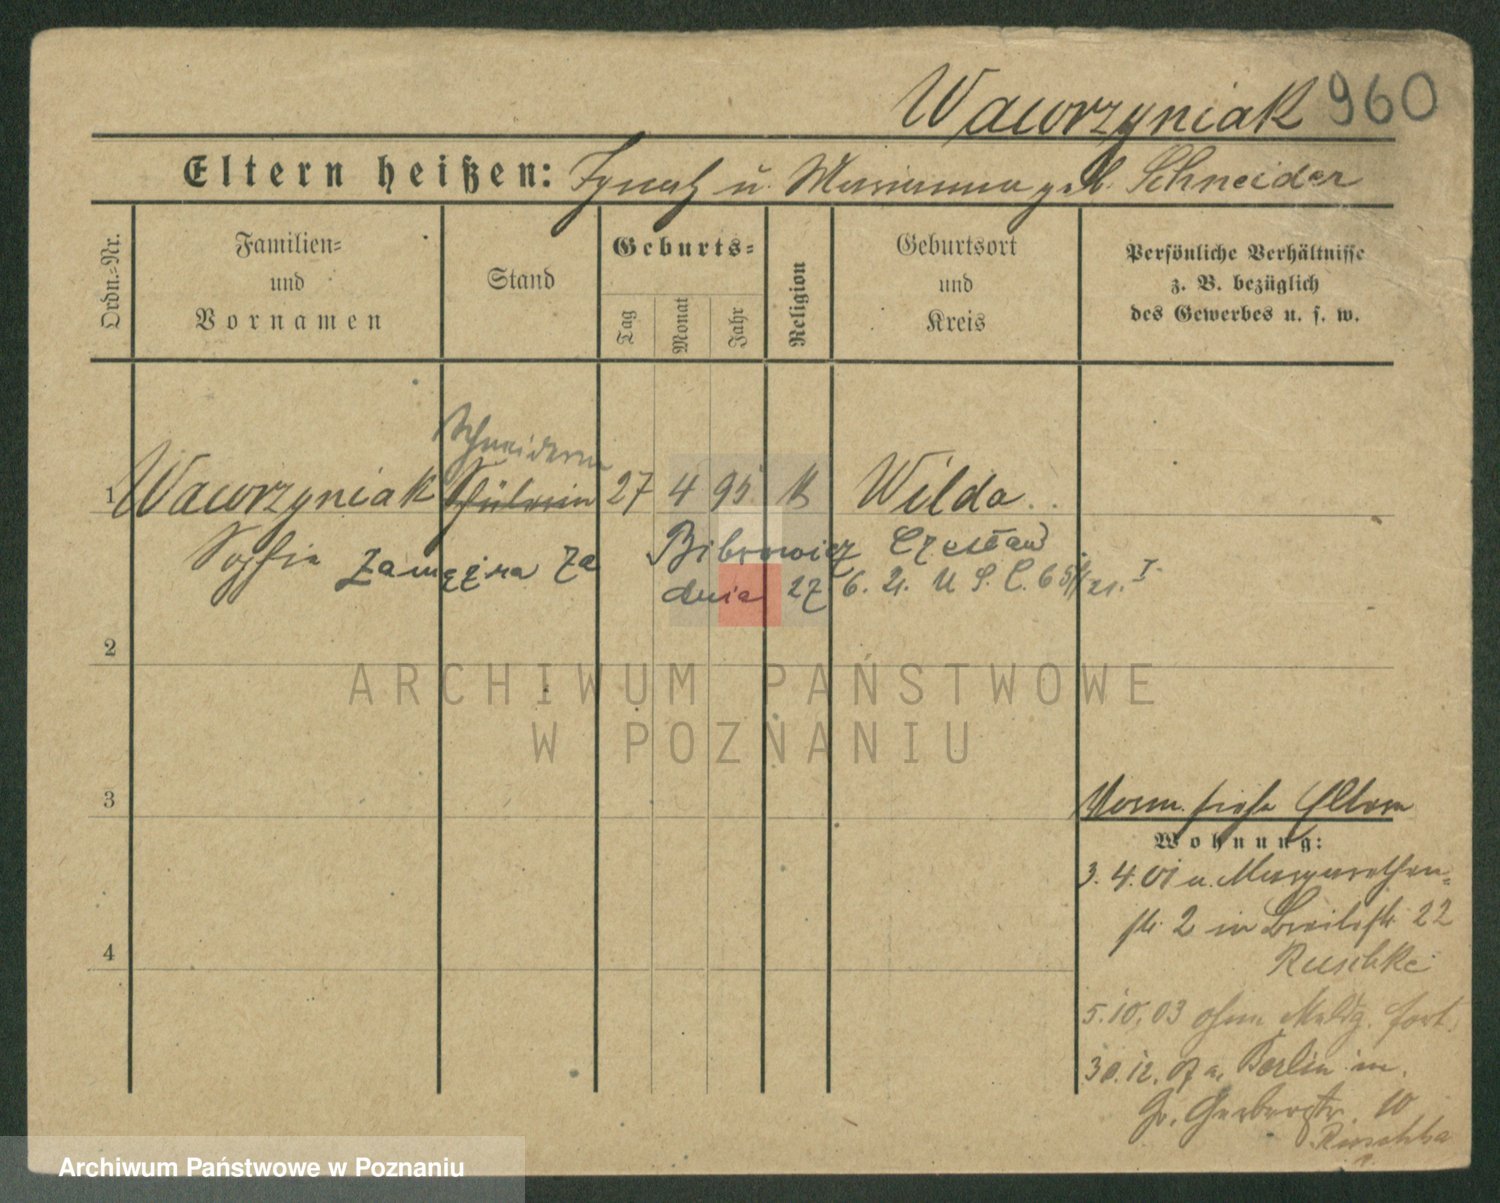 Wawrzyniak 960
Eltern heißen: Ignatz u. Marianna geb. Schneider
Ordn.=Nr.
Familien=
und
Vornamen
Stand
Geburts=
Tag
Monat
Jahr
Religion
Geburtsort
und
Kreis
Persönliche Verhältnisse
z. B. bezüglich
des Gewerbes u. s. w.
Schneiderin
1 Wawrzyniak Schülerin 27 4 95 k Wilda
Sophie Zamężna za Bibrowicz Czesław
dnia 27 6. 21. U S. C.
2
ARCHIWUM PAŃSTWOWE
W POZNANIU
3
Vorm. siehe Eltern
Wohnung:
3. 4. 01 a. Margarethen=
str 2 in Breitestr 22
Ruschke
4
5. 10. 03 ohne Meldg. fort.
30. 12. 07 a. Berlin in
Gr. Gerberstr. 10
Archiwum Państwowe w Poznaniu